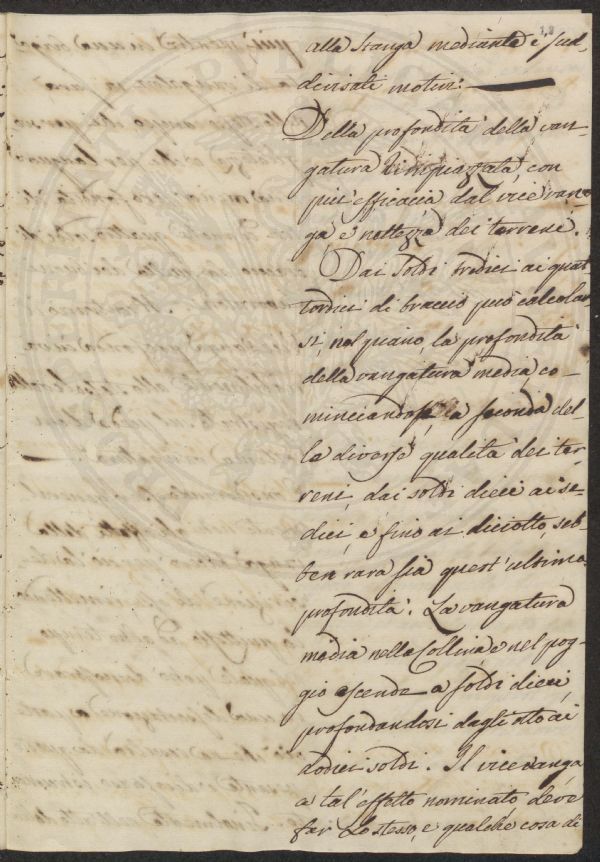 alla stanga mediante i sud,
divisati motivi.
Della profondità della van-
gatura rimpiazzata, con
più efficacia dal vice van-
ga e nettezza dei terreni.
Dai soldi tredici ai quat
tordici di braccio può calcolar
si, nel piano, la profondità
della vangatura media, co-
minciandosi, a seconda del
le diverse qualità dei ter,
reni, dai soldi dieci ai se-
dici, e fino ai diciotto, seb-
ben rara sia quest'ultima
profondità. La vangatura
media nella Collina, e nel pog-
gio ascende a soldi dieci,
profondandosi dagli otto ai
dodici soldi. Il vice vanga
a tal'effetto nominato, deve
far lo stesso, e qualche cosa di